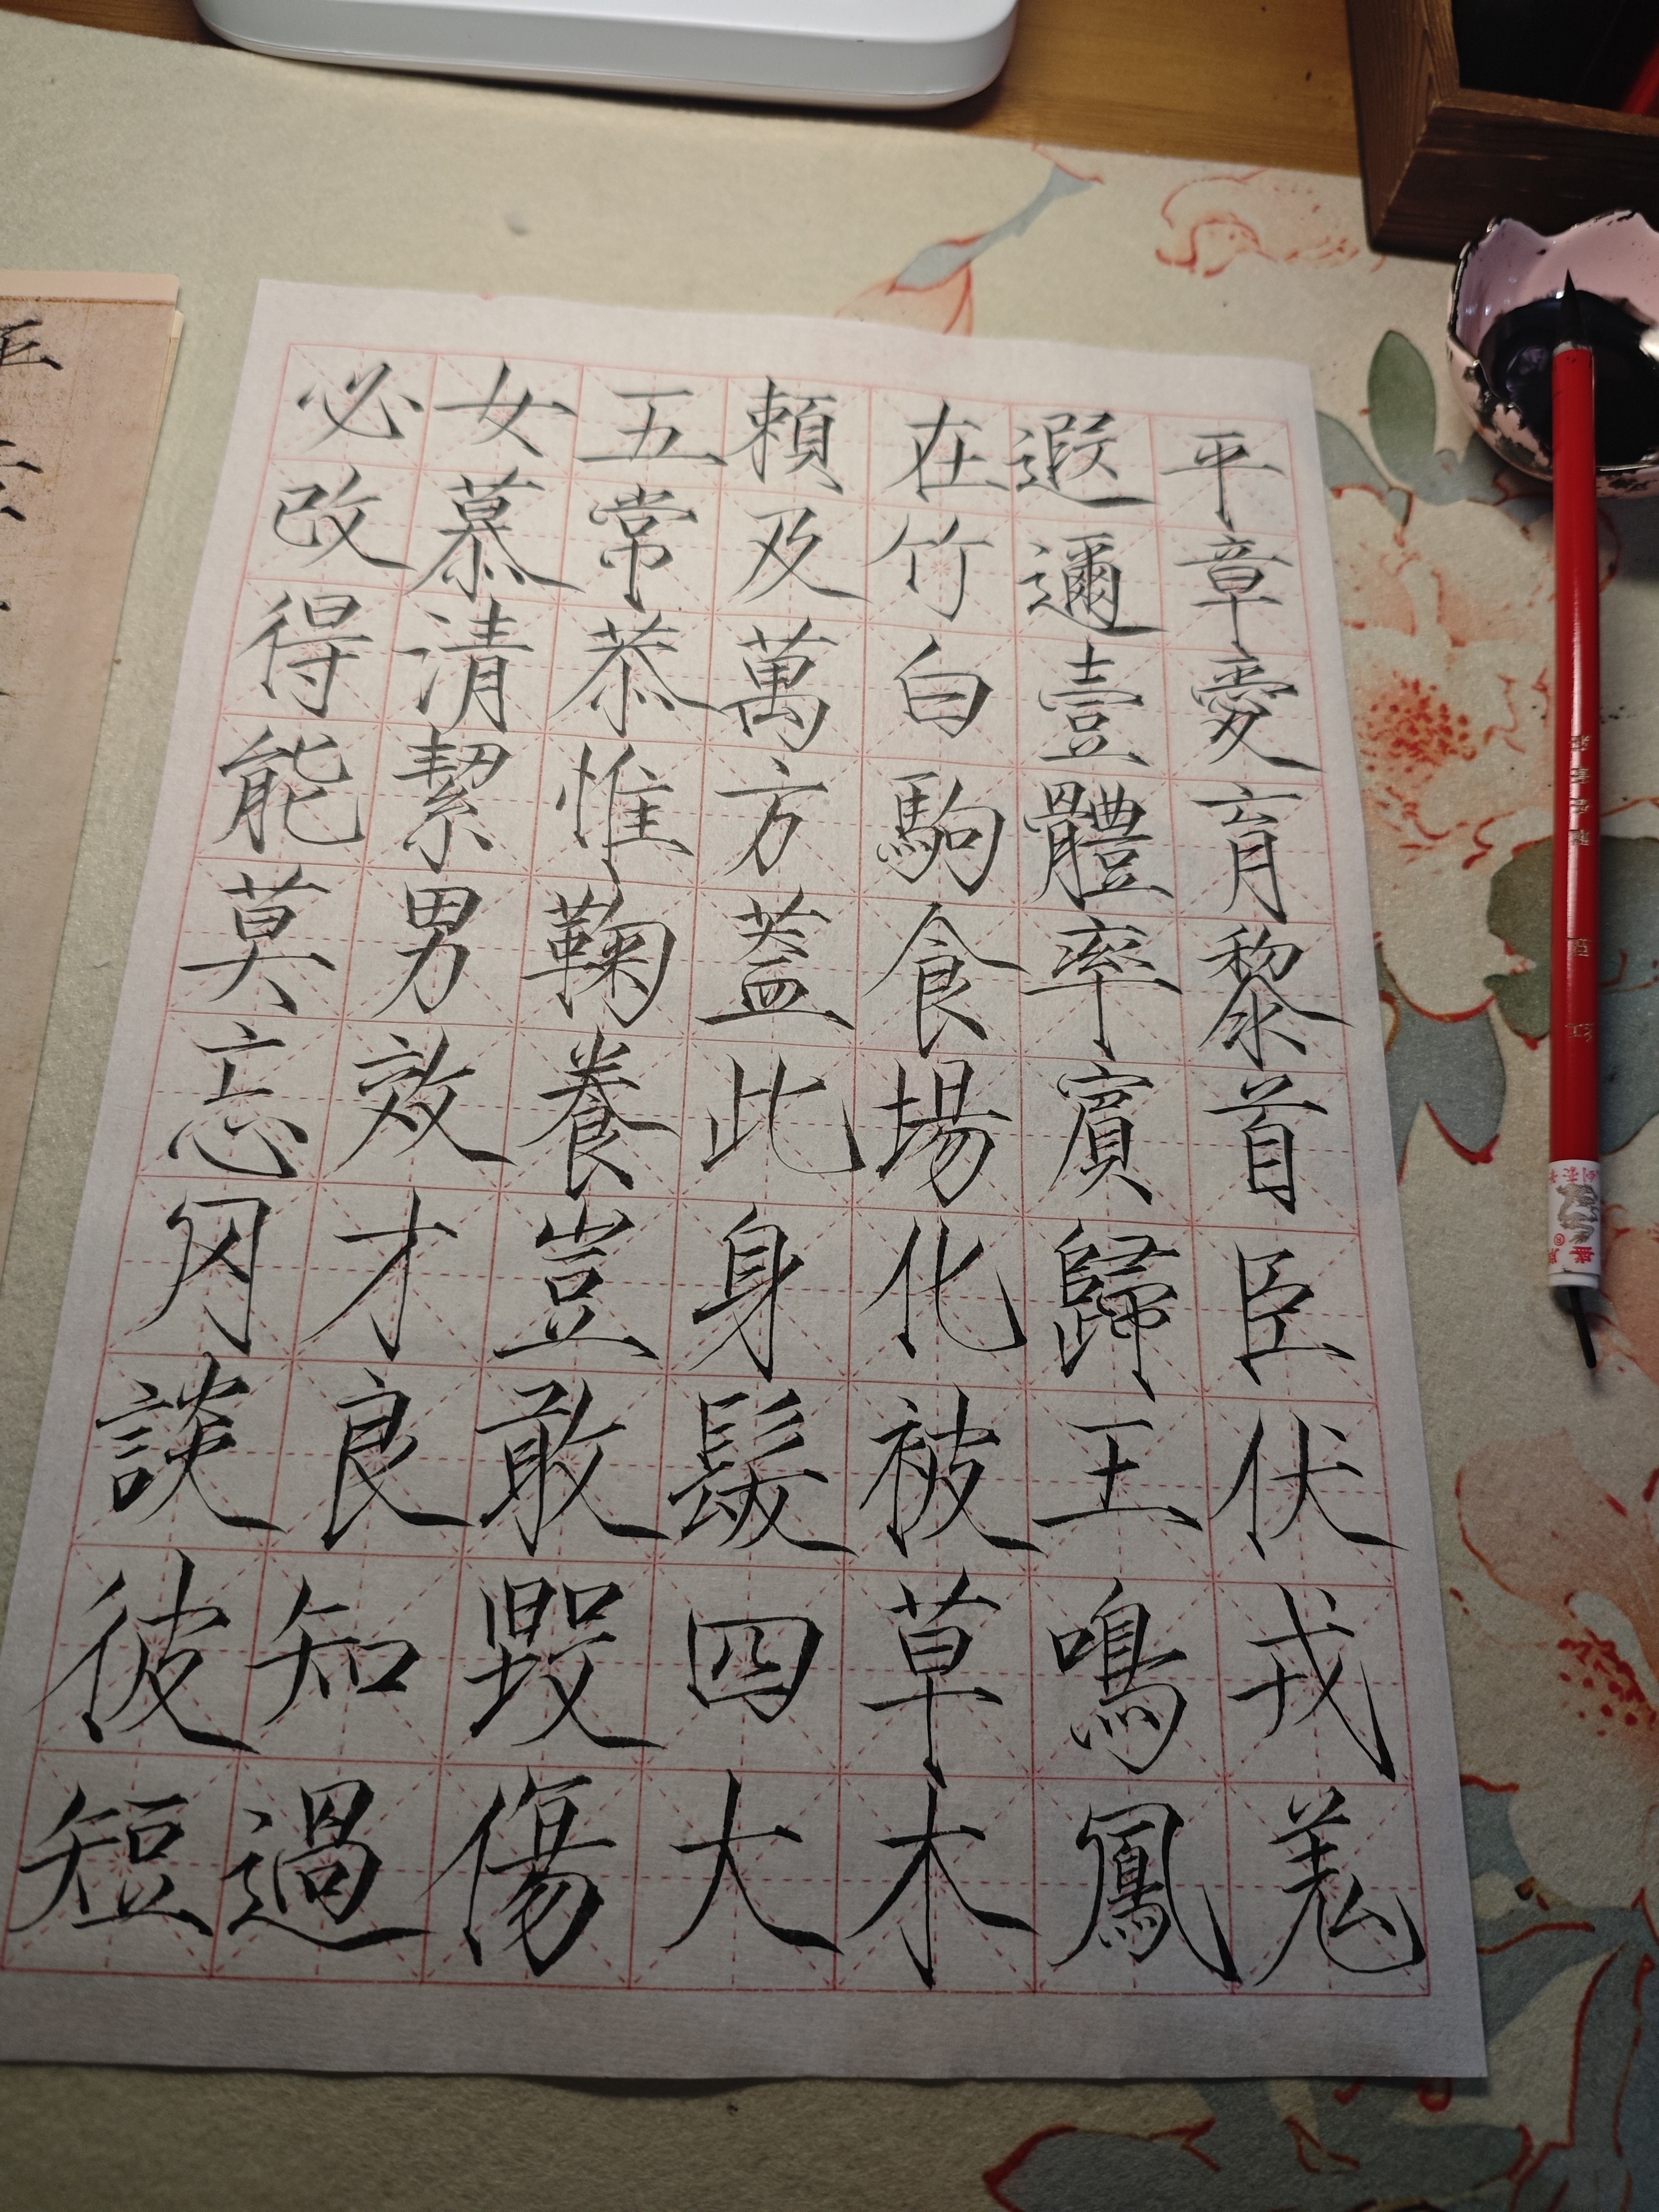 平章愛育黎首臣伏戎羗
遐邇壹體率賓歸王鳴鳳
在竹白駒食場化被草木
賴及萬方蓋此身髮四大
五常恭惟鞠養豈敢毀傷
女慕清絜男效才良知過
必改得能莫忘罔談彼短